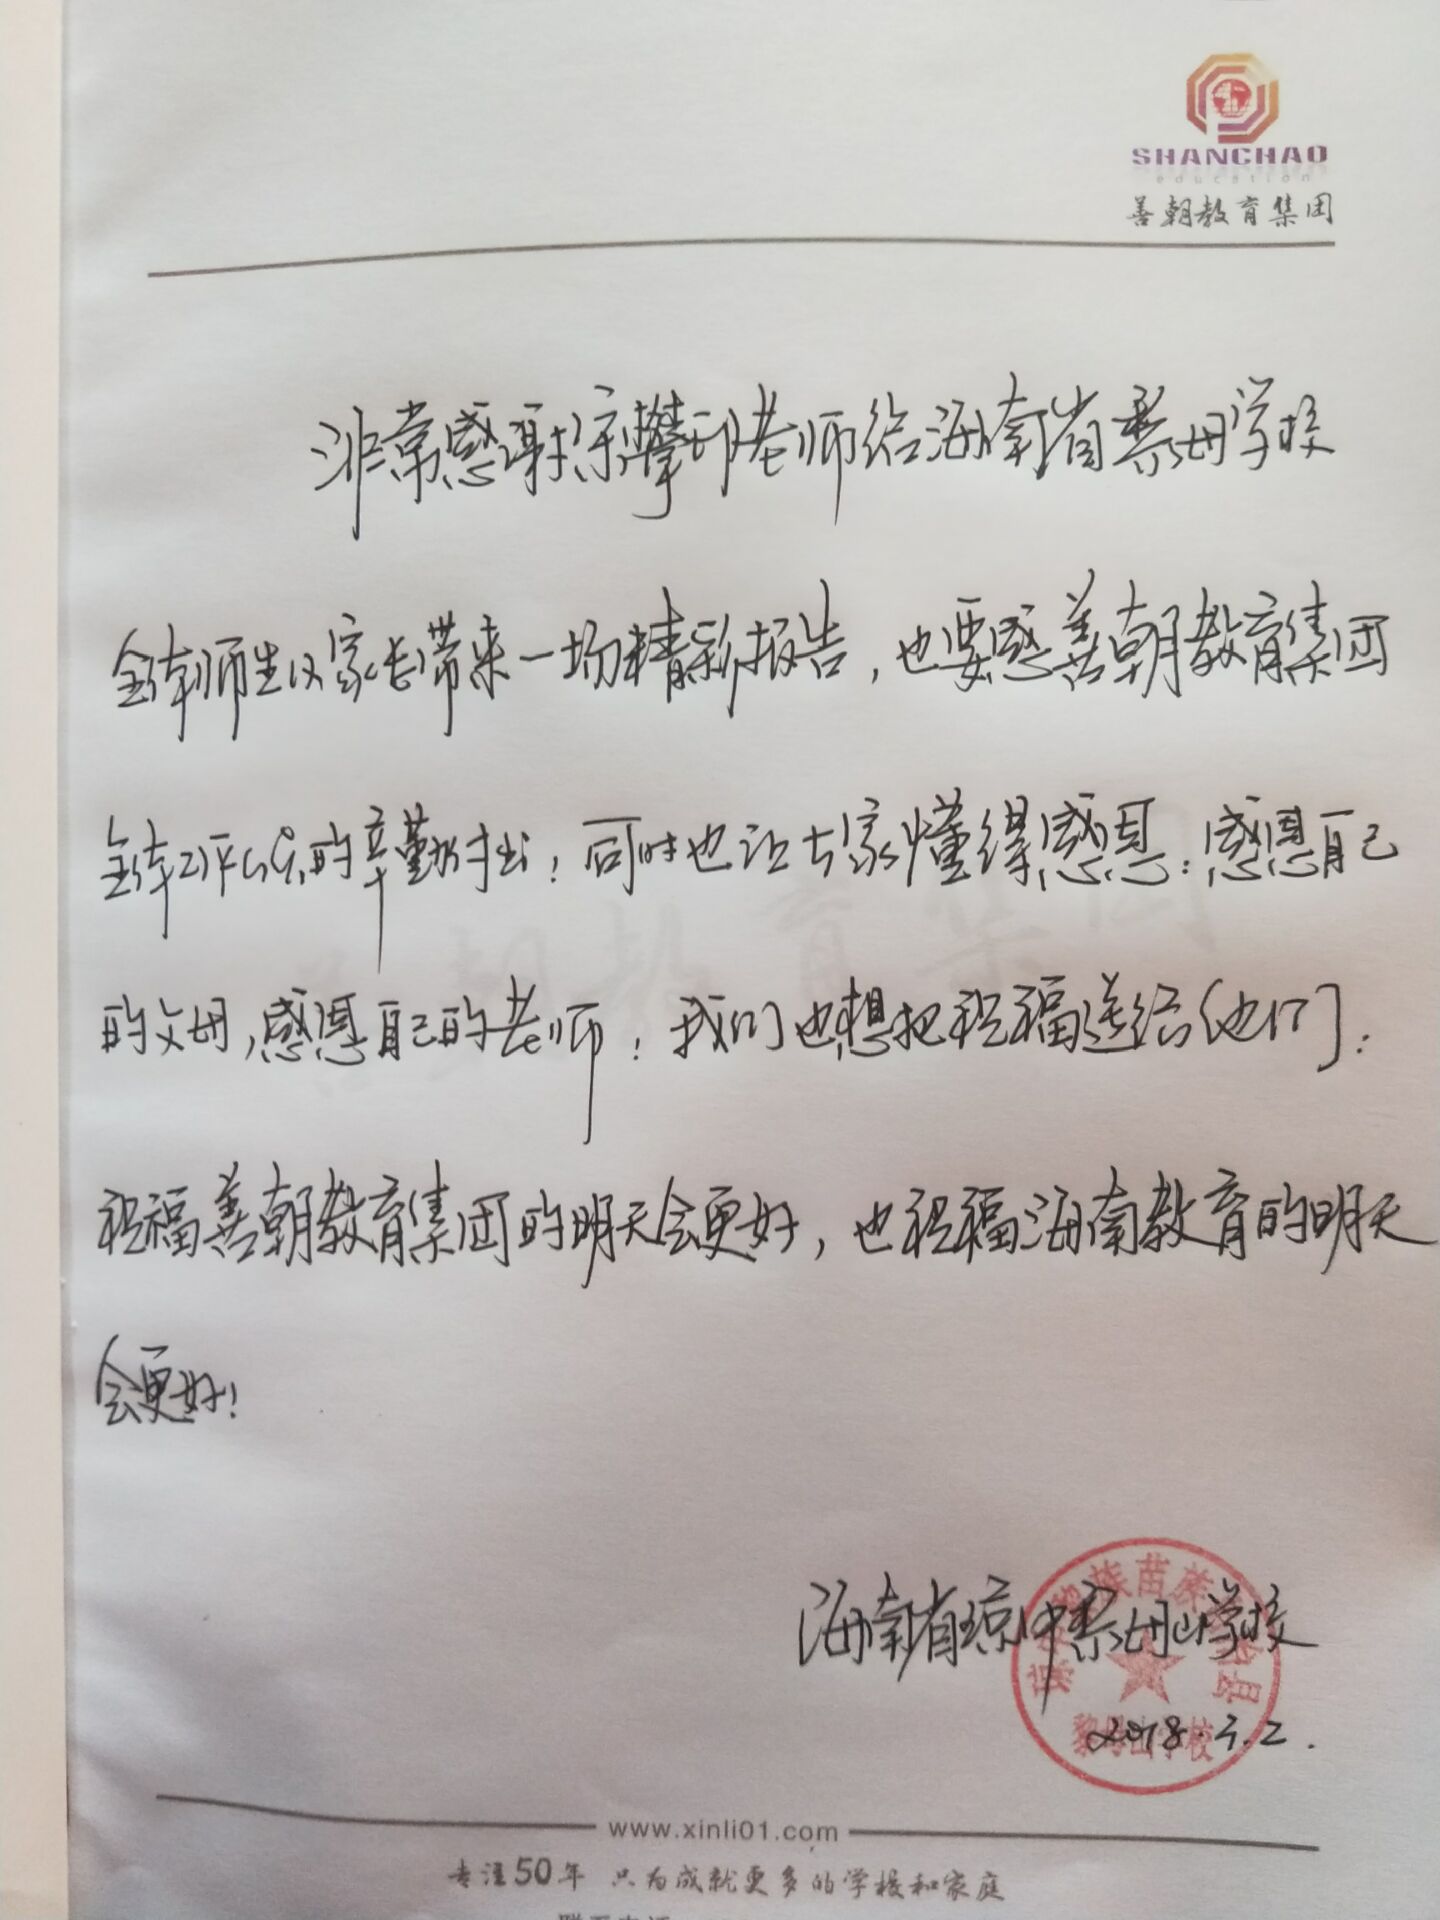 SHANCHAO
education
善朝教育集团
非常感谢 攀 老师给海南省黎母学校
全体师生以家长带来一场精彩报告，也要感善朝教育集团
全体工作人员的辛勤付出！同时也让大家懂得感恩：感恩自己
的父母，感恩自己的老师！我们也想把祝福送给他们：
祝福善朝教育集团的明天会更好，也祝福海南教育的明天
会更好！
海南省琼中黎母山学校
黎族苗族
黎母山学校
2018.3.2.
www.xinli01.com
专注50年 只为成就更多的学校和家庭